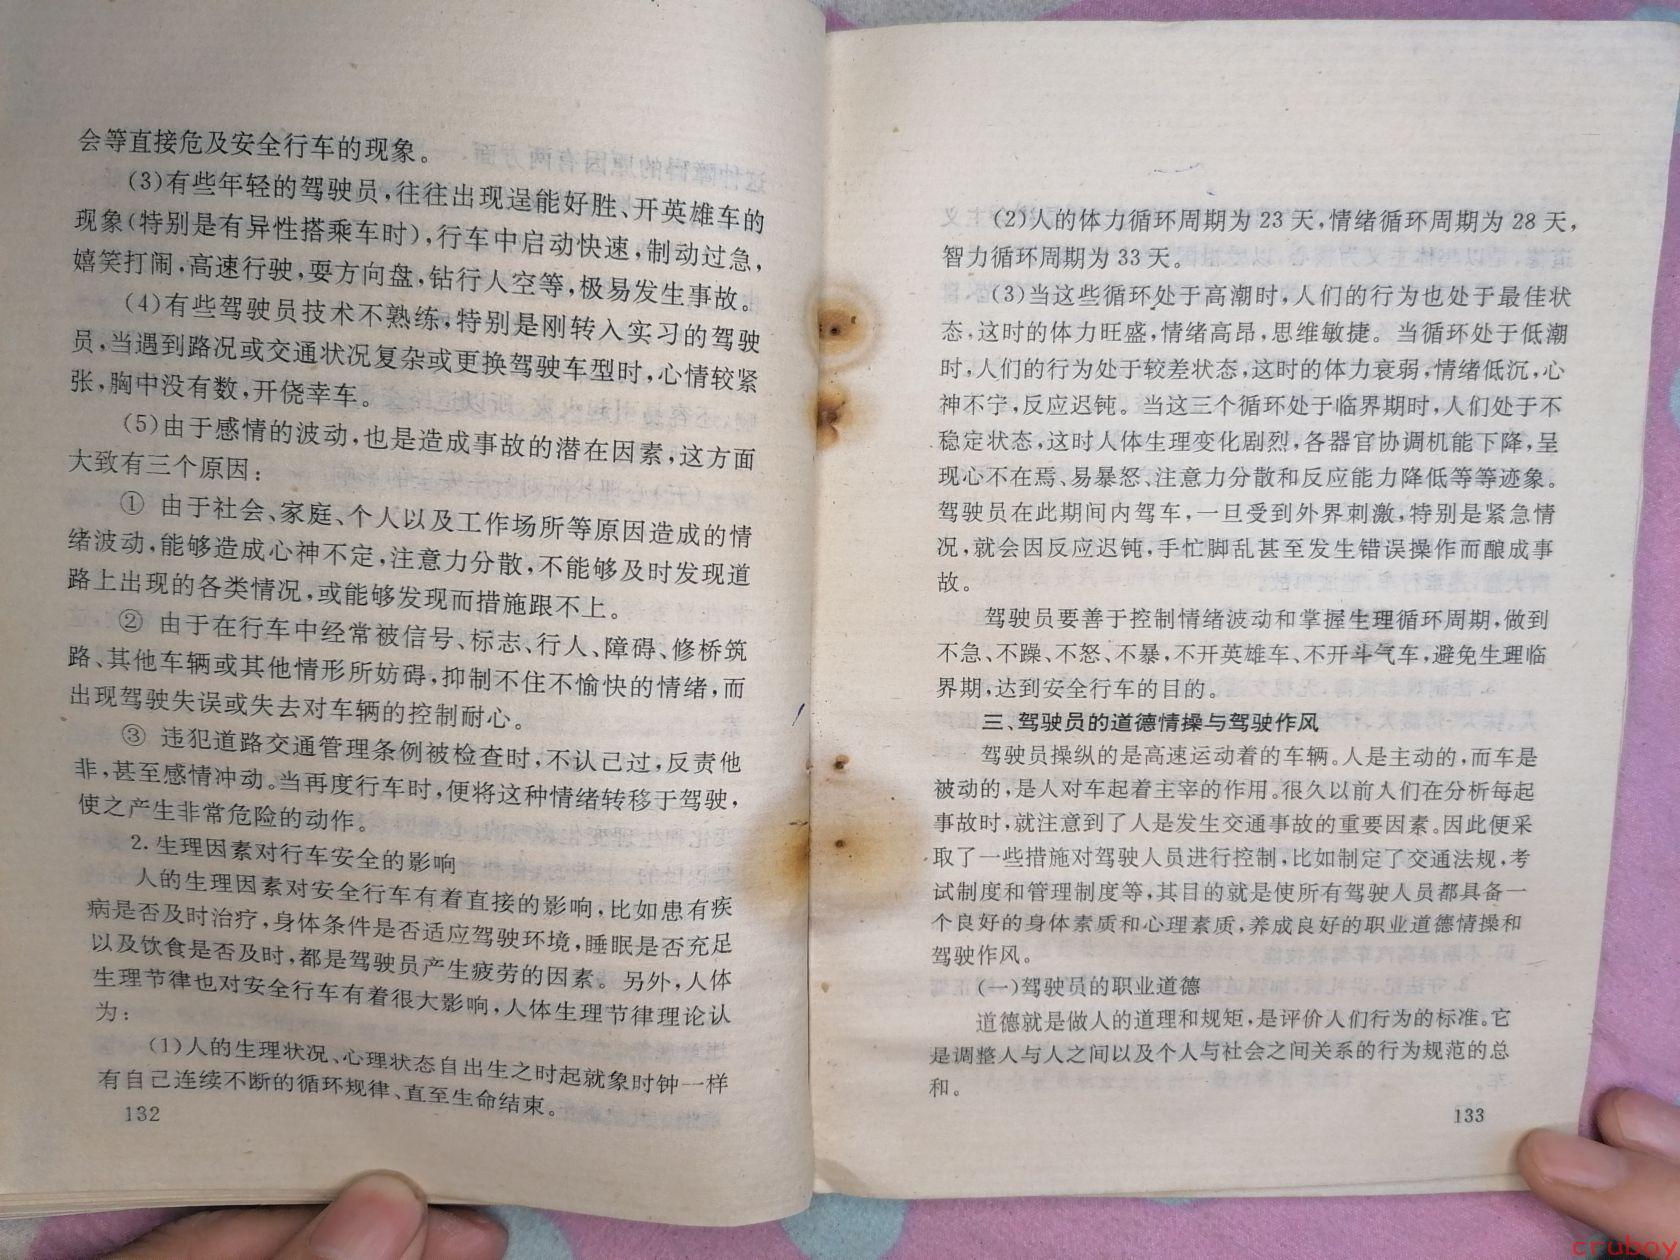 会等直接危及安全行车的现象。
(3)有些年轻的驾驶员,往往出现逞能好胜、开英雄车的
现象(特别是有异性搭乘车时),行车中启动快速,制动过急,
嬉笑打闹,高速行驶,耍方向盘,钻行人空等,极易发生事故。
(4)有些驾驶员技术不熟练,特别是刚转入实习的驾驶
员,当遇到路况或交通状况复杂或更换驾驶车型时,心情较紧
张,胸中没有数,开侥幸车。
(5)由于感情的波动,也是造成事故的潜在因素,这方面
大致有三个原因:
① 由于社会、家庭、个人以及工作场所等原因造成的情
绪波动,能够造成心神不定,注意力分散,不能够及时发现道
路上出现的各类情况,或能够发现而措施跟不上。
② 由于在行车中经常被信号、标志、行人、障碍、修桥筑
路、其他车辆或其他情形所妨碍,抑制不住不愉快的情绪,而
出现驾驶失误或失去对车辆的控制耐心。
③ 违犯道路交通管理条例被检查时,不认己过,反责他
非,甚至感情冲动。当再度行车时,便将这种情绪转移于驾驶,
使之产生非常危险的动作。
2.生理因素对行车安全的影响
人的生理因素对安全行车有着直接的影响,比如患有疾
病是否及时治疗,身体条件是否适应驾驶环境,睡眠是否充足
以及饮食是否及时,都是驾驶员产生疲劳的因素。另外,人体
生理节律也对安全行车有着很大影响,人体生理节律理论认
为:
(1)人的生理状况、心理状态自出生之时起就象时钟一样
有自己连续不断的循环规律、直至生命结束。
132
(2)人的体力循环周期为 23 天,情绪循环周期为 28 天,
智力循环周期为 33 天。
(3)当这些循环处于高潮时,人们的行为也处于最佳状
态,这时的体力旺盛,情绪高昂,思维敏捷。当循环处于低潮
时,人们的行为处于较差状态,这时的体力衰弱,情绪低沉,心
神不宁,反应迟钝。当这三个循环处于临界期时,人们处于不
稳定状态,这时人体生理变化剧烈,各器官协调机能下降,呈
现心不在焉、易暴怒、注意力分散和反应能力降低等等迹象。
驾驶员在此期间内驾车,一旦受到外界刺激,特别是紧急情
况,就会因反应迟钝,手忙脚乱甚至发生错误操作而酿成事
故。
驾驶员要善于控制情绪波动和掌握生理循环周期,做到
不急、不躁、不怒、不暴,不开英雄车、不开斗气车,避免生理临
界期,达到安全行车的目的。
三、驾驶员的道德情操与驾驶作风
驾驶员操纵的是高速运动着的车辆。人是主动的,而车是
被动的,是人对车起着主宰的作用。很久以前人们在分析每起
事故时,就注意到了人是发生交通事故的重要因素。因此便采
取了一些措施对驾驶人员进行控制,比如制定了交通法规,考
试制度和管理制度等,其目的就是使所有驾驶人员都具备一
个良好的身体素质和心理素质,养成良好的职业道德情操和
驾驶作风。
(一)驾驶员的职业道德
道德就是做人的道理和规矩,是评价人们行为的标准。它
是调整人与人之间以及个人与社会之间关系的行为规范的总
和。
133
cruboy